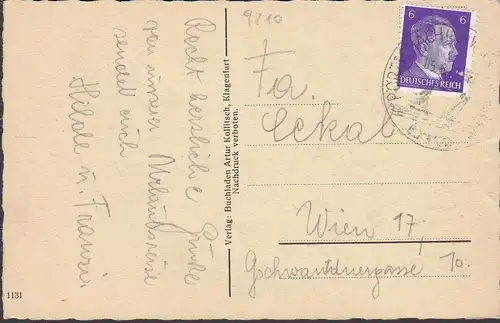 9210
Recht herzliche Grüße
von unserer Urlaubsreise
sendet euch
Hilde u. Franzi
Verlag: Buchladen Artur Kollitsch, Klagenfurt
Nachdruck verboten.
6 6
DEUTSCHES REICH
Fa.
Eckal
Wien 17,
Gschwandnergasse 10.
1131